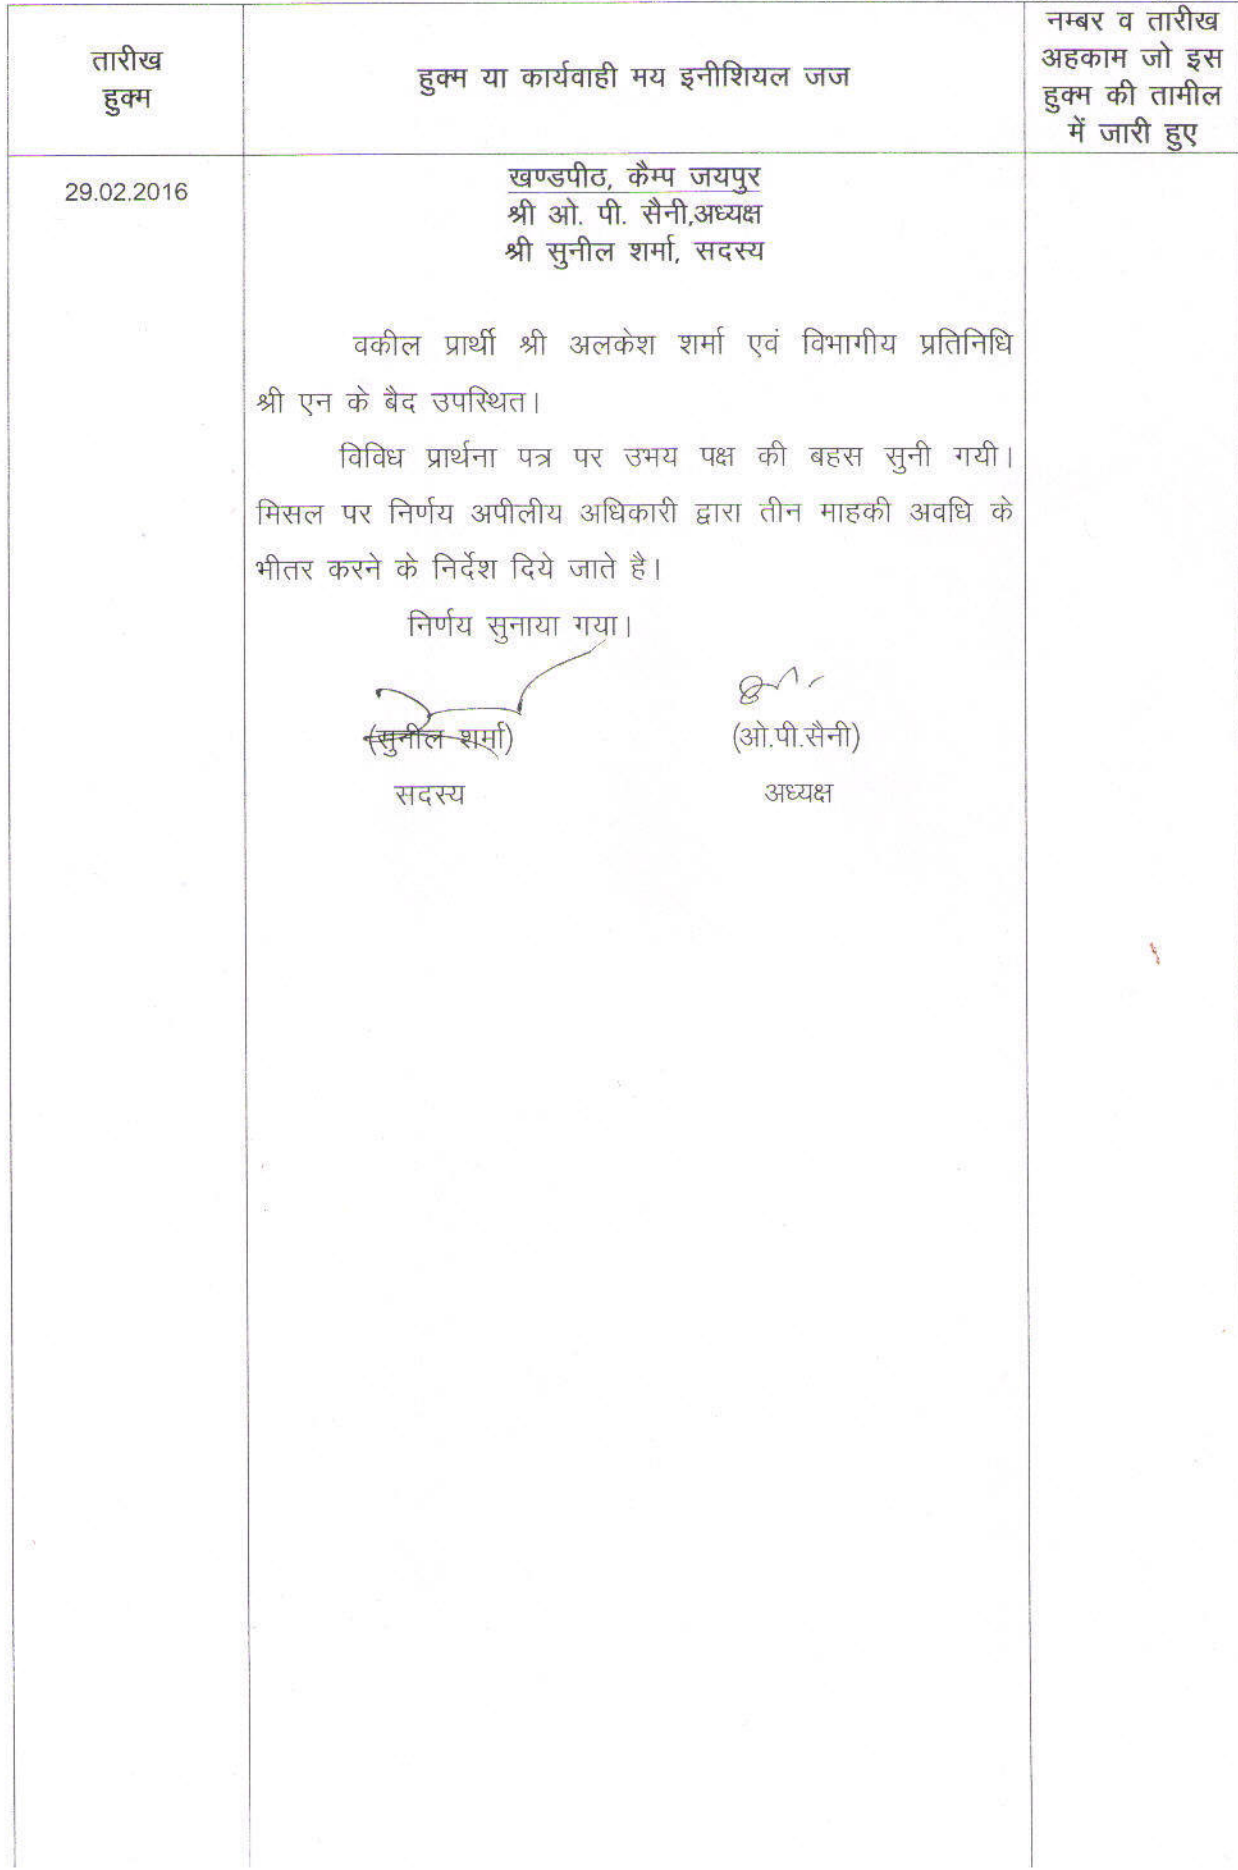 तारीख
हुक्म
हुक्म या कार्यवाही मय इनीशियल जज
नम्बर व तारीख
अहकाम जो इस
हुक्म की तामील
में जारी हुए
29.02.2016
खण्डपीठ, कैम्प जयपुर
श्री ओ. पी. सैनी,अध्यक्ष
श्री सुनील शर्मा, सदस्य
वकील प्रार्थी श्री अलकेश शर्मा एवं विभागीय प्रतिनिधि
श्री एन के बैद उपस्थित।
विविध प्रार्थना पत्र पर उभय पक्ष की बहस सुनी गयी।
मिसल पर निर्णय अपीलीय अधिकारी द्वारा तीन माहकी अवधि के
भीतर करने के निर्देश दिये जाते है।
निर्णय सुनाया गया।
(सुनील शर्मा) (ओ.पी.सैनी)
सदस्य अध्यक्ष